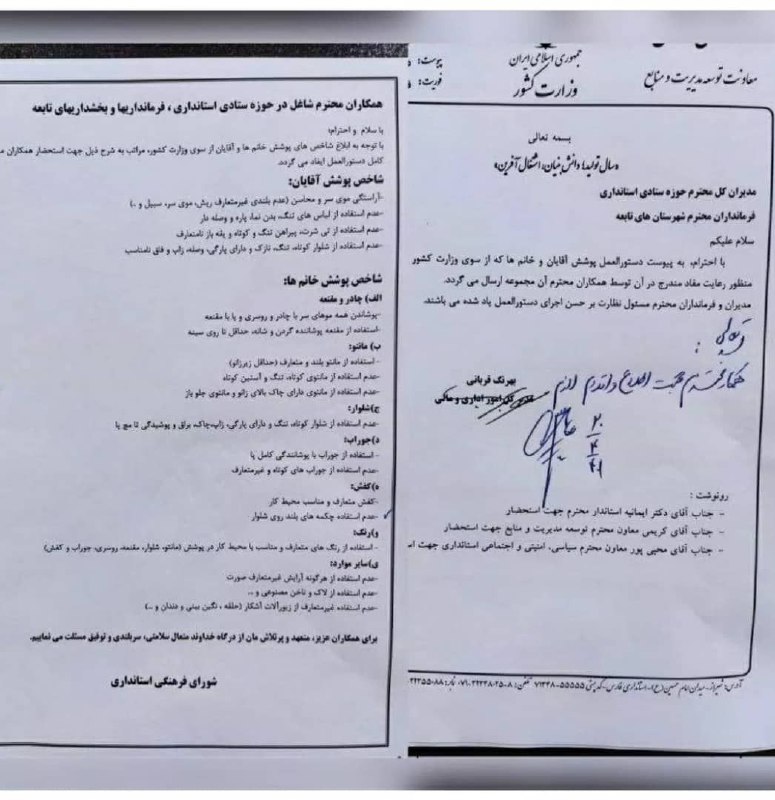 معاونت توسعه مدیریت و منابع
جمهوری اسلامی ایران
وزارت کشور
پیوست:
فوریت:
بسمه تعالی
«سال تولید؛ دانش بنیان، اشتغال آفرین»
مدیران کل محترم حوزه ستادی استانداری
فرمانداران محترم شهرستان های تابعه
سلام علیکم
با احترام، به پیوست دستورالعمل پوشش آقایان و خانم ها که از سوی وزارت کشور
منظور رعایت مفاد مندرج در آن توسط همکاران محترم آن مجموعه ارسال می گردد.
مدیران و فرمانداران محترم مسئول نظارت بر حسن اجرای دستورالعمل یاد شده می باشند.
جهت اطلاع و اقدام لازم
بهرنگ قربانی
مدیر کل امور اداری و مالی
رونوشت :
- جناب آقای دکتر ایمانیه استاندار محترم جهت استحضار
- جناب آقای کریمی معاون محترم توسعه مدیریت و منابع جهت استحضار
- جناب آقای محبی پور معاون محترم سیاسی، امنیتی و اجتماعی استانداری جهت اس
آدرس: شیراز، میدان امام حسین (ع)، استانداری فارس - کدپستی ۵۵۵۵۵-۷۱۳۴۸ تلفن:
همکاران محترم شاغل در حوزه ستادی استانداری ، فرمانداریها و بخشداریهای تابعه
با سلام و احترام؛
با توجه به ابلاغ شاخص های پوشش خانم ها و آقایان از سوی وزارت کشور، مراتب به شرح ذیل جهت استحضار همکاران
کامل دستورالعمل ایفاد می گردد.
شاخص پوشش آقایان:
-آراستگی موی سر و محاسن (عدم بلندی غیرمتعارف ریش، موی سر، سبیل و ..)
-عدم استفاده از لباس های تنگ، بدن نما، پاره و وصله دار
-عدم استفاده از تی شرت، پیراهن تنگ و کوتاه و یقه باز نامتعارف
-عدم استفاده از شلوار کوتاه، تنگ، نازک و دارای پارگی، وصله، زاپ و فاق نامناسب
شاخص پوشش خانم ها:
الف) چادر و مقنعه
-پوشاندن همه موهای سر با چادر و روسری و یا با مقنعه
-استفاده از مقنعه پوشاننده گردن و شانه، حداقل تا روی سینه
ب) مانتو:
- استفاده از مانتو بلند و متعارف (حداقل زیرزانو)
-عدم استفاده از مانتوی کوتاه، تنگ و آستین کوتاه
-عدم استفاده از مانتوی دارای چاک بالای زانو و مانتوی جلو باز
ج)شلوار:
-عدم استفاده از شلوار کوتاه، تنگ و دارای پارگی، زاپ،چاک، براق و پوشیدگی تا مچ پا
د)جوراب:
- استفاده از جوراب با پوشانندگی کامل پا
-عدم استفاده از جوراب های کوتاه و غیرمتعارف
ه)کفش:
-کفش متعارف و مناسب محیط کار
-عدم استفاده چکمه های بلند روی شلوار
و)رنگ:
- استفاده از رنگ های متعارف و متناسب با محیط کار در پوشش (مانتو، شلوار، مقنعه، روسری، جوراب و کفش)
ی)سایر موارد:
-عدم استفاده از هرگونه آرایش غیرمتعارف صورت
-عدم استفاده از لاک و ناخن مصنوعی و ..
-عدم استفاده غیرمتعارف از زیورآلات آشکار (حلقه ، نگین بینی و دندان و ..)
برای همکاران عزیز، متعهد و پرتلاش مان از درگاه خداوند متعال سلامتی، سربلندی و توفیق مسئلت می نماییم.
شورای فرهنگی استانداری